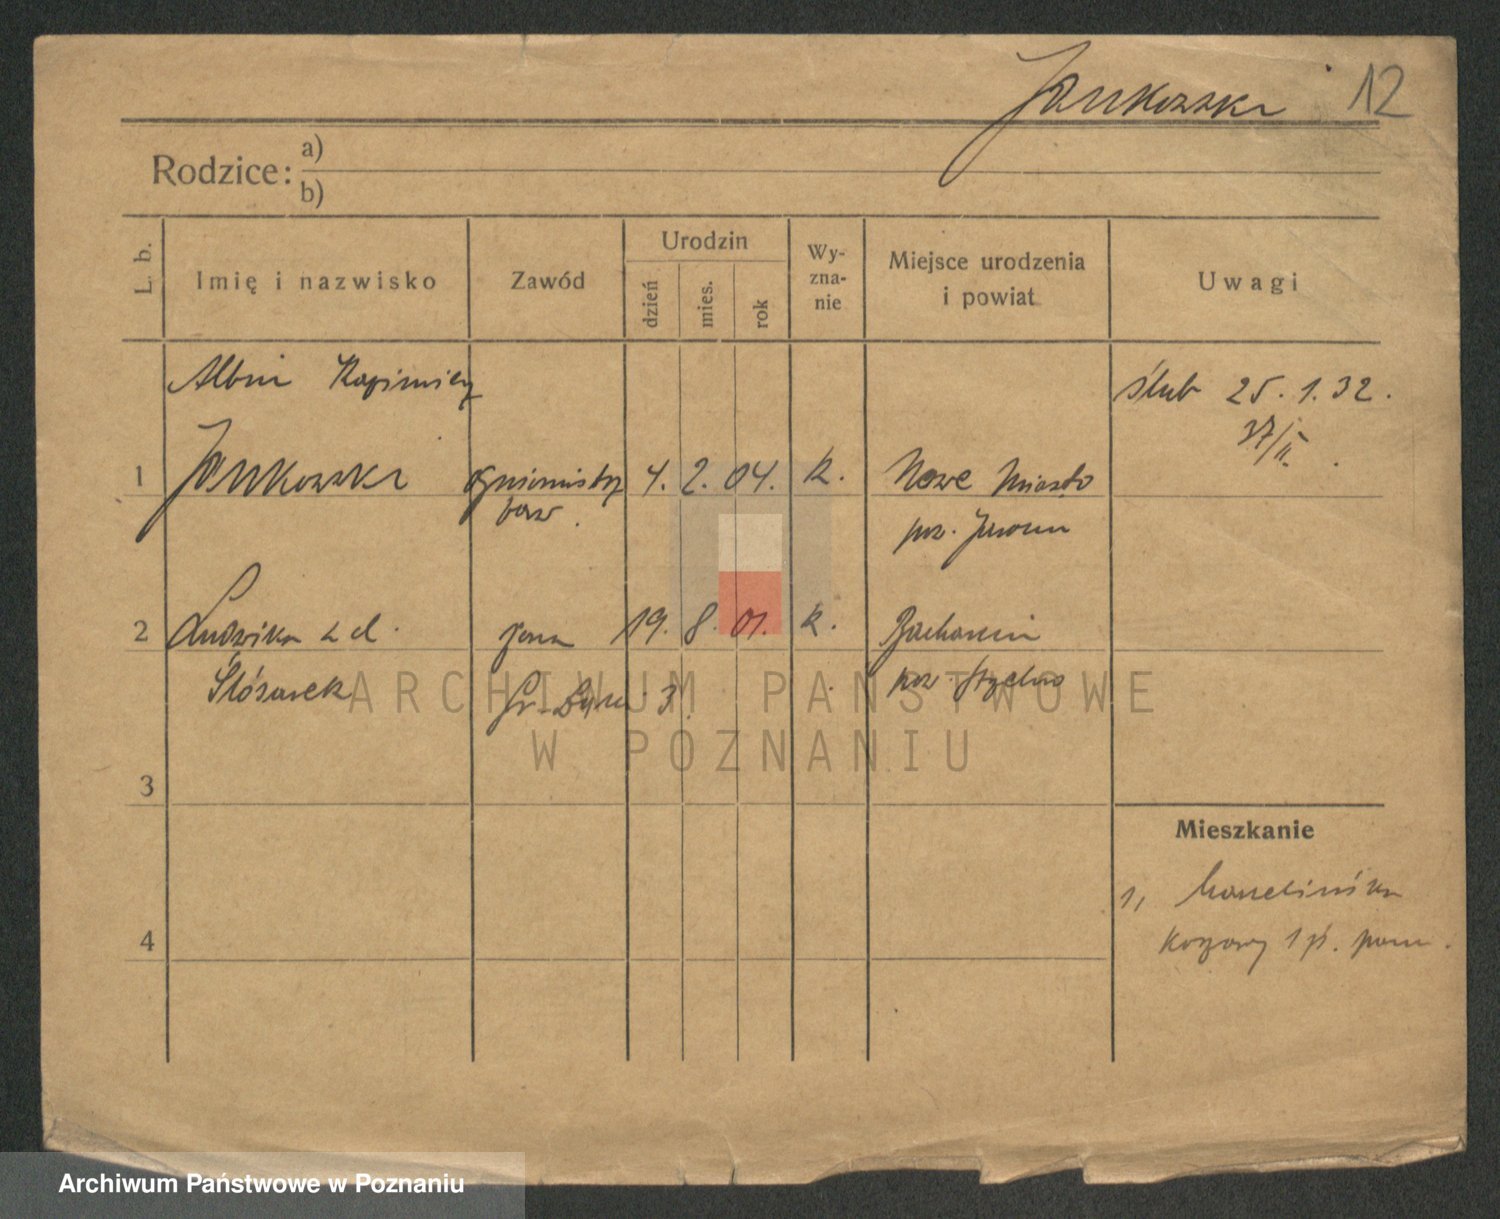 Jankowski 12
Rodzice: a)
b)
L. b.
Imię i nazwisko
Zawód
Urodzin
dzień
mies.
rok
Wy-
zna-
nie
Miejsce urodzenia
i powiat
Uwagi
Albin Kazimierz
ślub 25.1.32.
37/II.
1 Jankowski ogniomistrz 4. 2. 04. k. Nowe Miasto
pow. Jarocin
2 Ludwika z d. żona 19. 8. 01. k.
Ślósarek 3.
ARCHIWUM PAŃSTWOWE
W POZNANIU
3
Mieszkanie
1, Marcelińska
4 koszary 1 p.
Archiwum Państwowe w Poznaniu